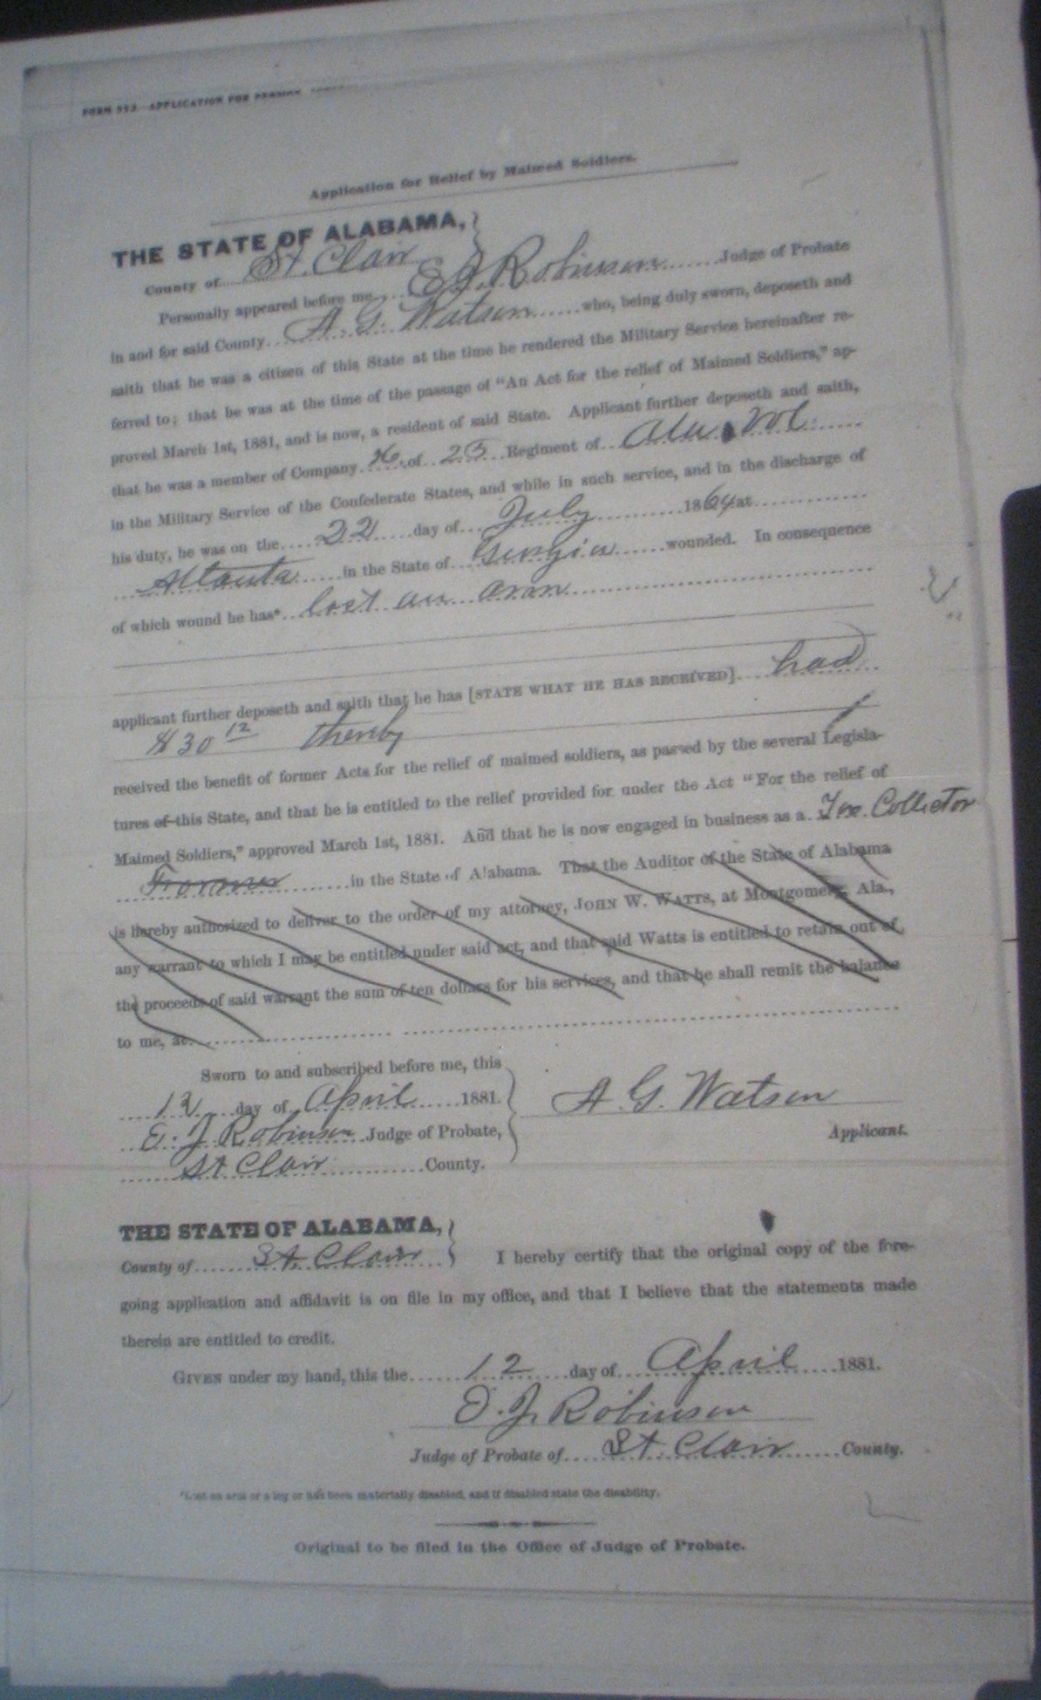 APPLICATION FOR PENSION
Application for Relief by Maimed Soldiers.
THE STATE OF ALABAMA,
County of St. Clair
Personally appeared before me E J Robinson Judge of Probate
in and for said County A. G. Watson who, being duly sworn, deposeth and
saith that he was a citizen of this State at the time he rendered the Military Service hereinafter re-
ferred to; that he was at the time of the passage of "An Act for the relief of Maimed Soldiers," ap-
proved March 1st, 1881, and is now, a resident of said State. Applicant further deposeth and saith,
that he was a member of Company of 25 Regiment of Ala Vol
in the Military Service of the Confederate States, and while in such service, and in the discharge of
his duty, he was on the 22 day of July 1864 at
Atlanta in the State of Georgia wounded. In consequence
of which wound he has* lost an arm
applicant further deposeth and saith that he has [STATE WHAT HE HAS RECEIVED] had
$30 12 thereby
received the benefit of former Acts for the relief of maimed soldiers, as passed by the several Legisla-
tures of this State, and that he is entitled to the relief provided for under the Act "For the relief of
Maimed Soldiers," approved March 1st, 1881. And that he is now engaged in business as a Tax Collector
Farmer in the State of Alabama. That the Auditor of the State of Alabama
is hereby authorized to deliver to the order of my attorney, JOHN W. WATTS, at Montgomery, Ala.,
any warrant to which I may be entitled under said act, and that said Watts is entitled to retain out of
the proceeds of said warrant the sum of ten dollars for his services, and that he shall remit the balance
to me, at
Sworn to and subscribed before me, this
12 day of April 1881.
A. G. Watson
E. J Robinson Judge of Probate,
Applicant.
St Clair County.
THE STATE OF ALABAMA,
County of St. Clair I hereby certify that the original copy of the fore-
going application and affidavit is on file in my office, and that I believe that the statements made
therein are entitled to credit.
GIVEN under my hand, this the 12 day of April 1881.
E. J. Robinson
Judge of Probate of St. Clair County.
*Lost an arm or a leg or has been materially disabled, and if disabled state the disability.
Original to be filed in the Office of Judge of Probate.